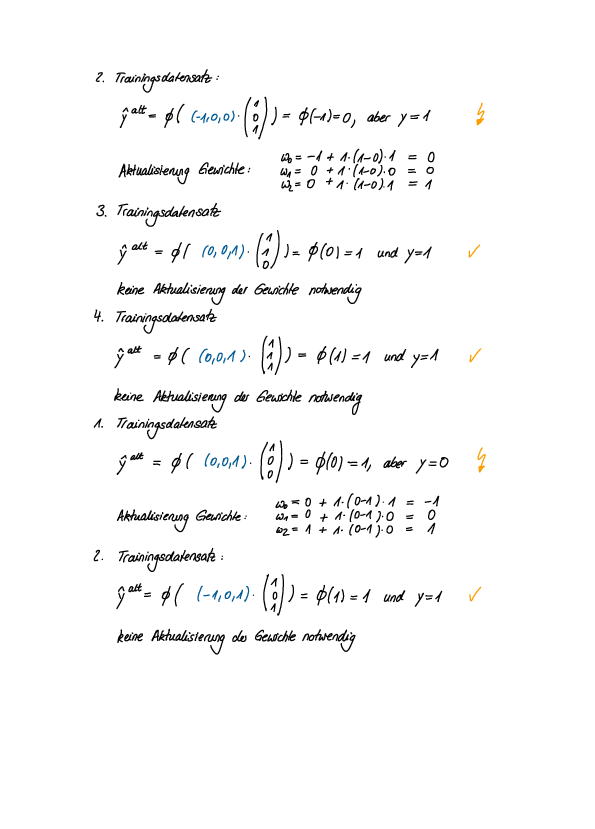 2. Trainingsdatensatz:
ŷ^alt = ϕ( (-1,0,0) · (1 0 1) ) = ϕ(-1)=0, aber y=1
Aktualisierung Gewichte:
ω₀ = -1 + 1·(1-0)·1 = 0
ω₁ = 0 + 1·(1-0)·0 = 0
ω₂ = 0 + 1·(1-0)·1 = 1
3. Trainingsdatensatz
ŷ^alt = ϕ( (0,0,1) · (1 1 0) ) = ϕ(0) = 1 und y=1 ✓
keine Aktualisierung der Gewichte notwendig
4. Trainingsdatensatz
ŷ^alt = ϕ( (0,0,1) · (1 1 1) ) = ϕ(1) = 1 und y=1 ✓
keine Aktualisierung der Gewichte notwendig
1. Trainingsdatensatz
ŷ^alt = ϕ( (0,0,1) · (1 0 0) ) = ϕ(0) = 1, aber y=0
Aktualisierung Gewichte:
ω₀ = 0 + 1·(0-1)·1 = -1
ω₁ = 0 + 1·(0-1)·0 = 0
ω₂ = 1 + 1·(0-1)·0 = 1
2. Trainingsdatensatz:
ŷ^alt = ϕ( (-1,0,1) · (1 0 1) ) = ϕ(1) = 1 und y=1 ✓
keine Aktualisierung der Gewichte notwendig